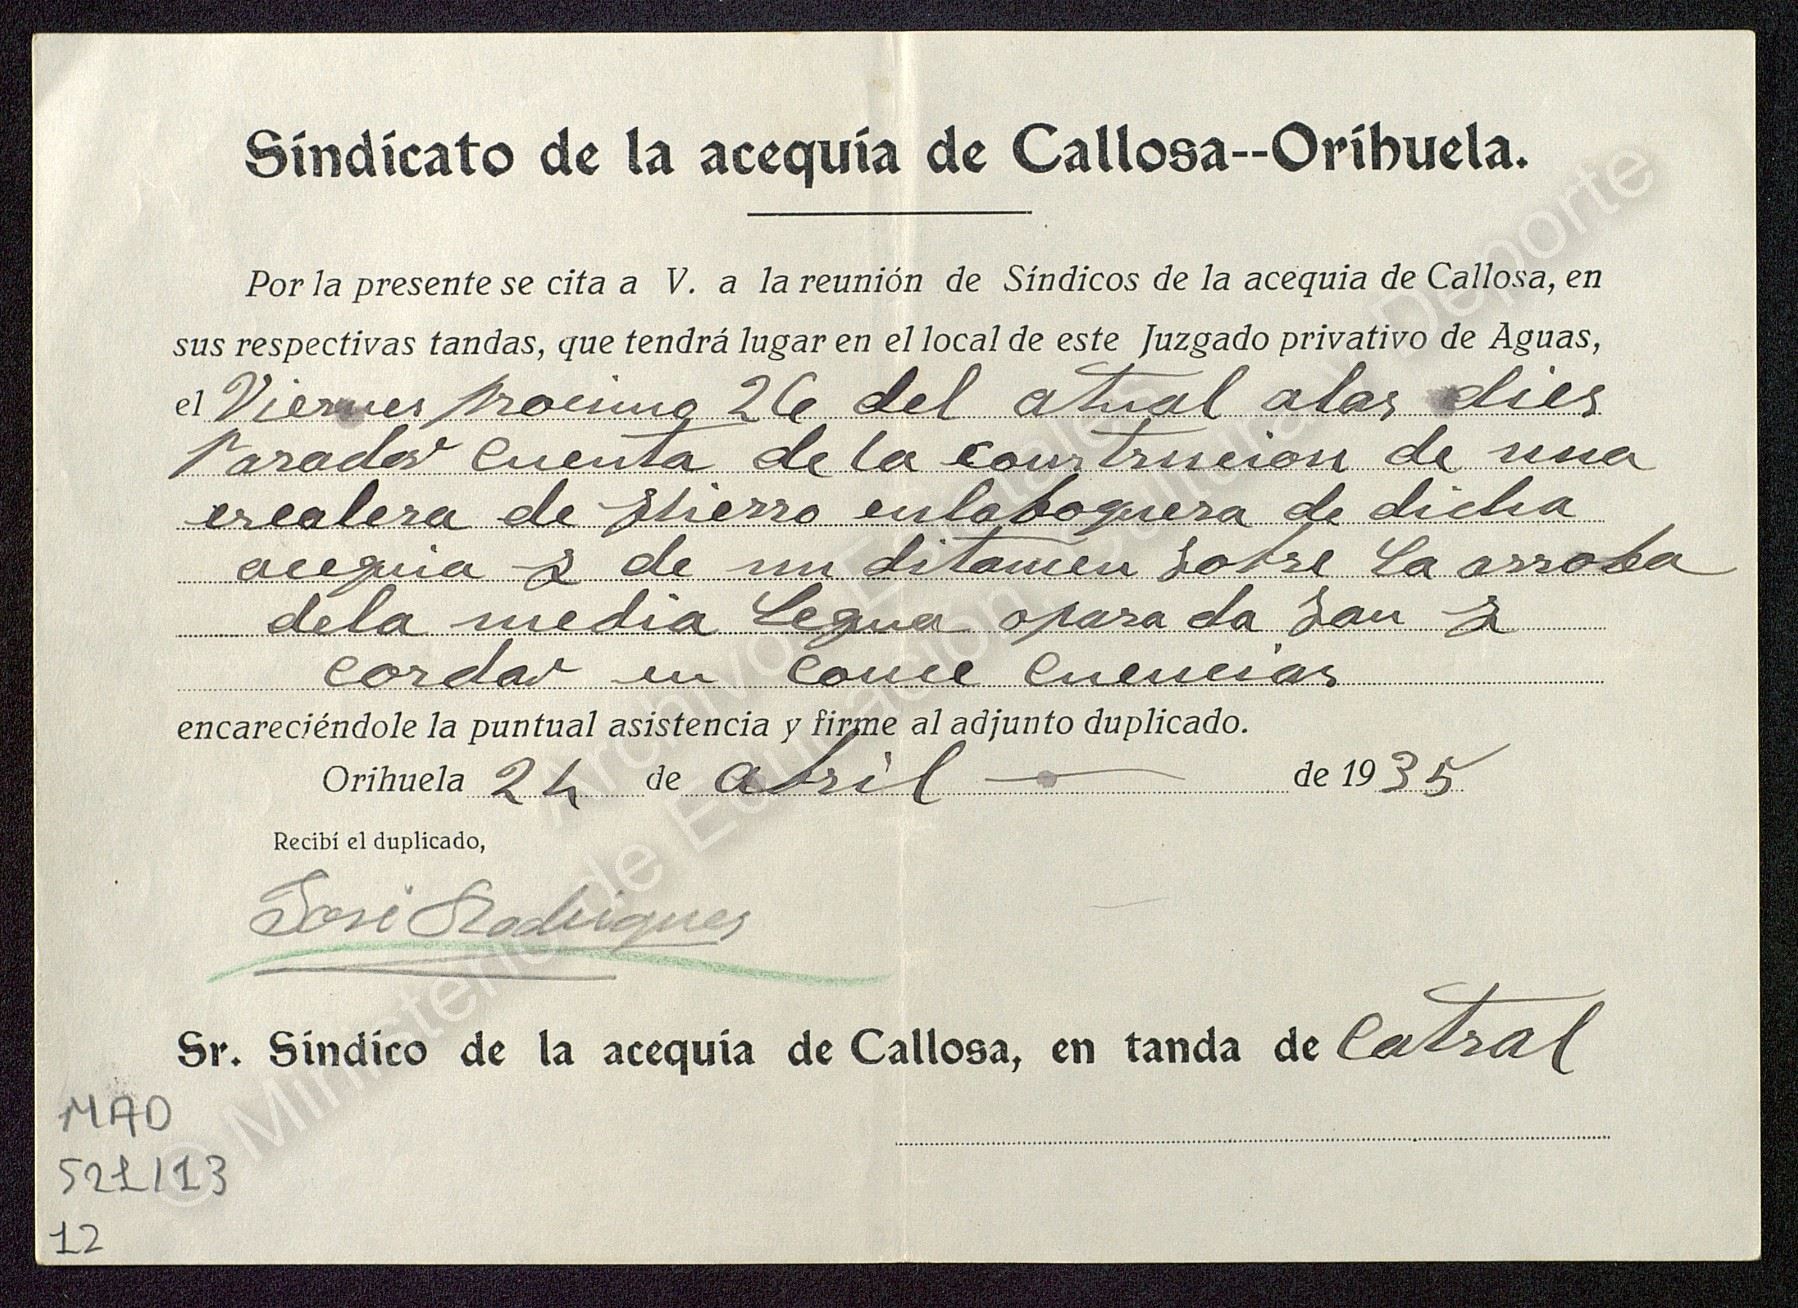 Sindicato de la acequia de Callosa--Orihuela.
Por la presente se cita a V. a la reunión de Síndicos de la acequia de Callosa, en
sus respectivas tandas, que tendrá lugar en el local de este Juzgado privativo de Aguas,
el Viernes procimo 26 del atual alas dies
Paradar cuenta de la construcion de una
escalera de Hierro enlaboquera de dicha
acequia y de un ditamen sobre la arroba
dela media Legua o parada San y
cordar en conce cuencias
encareciéndole la puntual asistencia y firme al adjunto duplicado.
Orihuela 24 de abril de 1935
Recibí el duplicado,
José Rodrigues
Sr. Síndico de la acequia de Callosa, en tanda de Catral
MAD
521/13
12
© Ministerio de Educación, Cultura y Deporte
Archivos Estatales